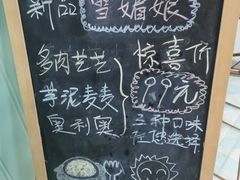 新品 雪媚娘
多肉芝芝
芋泥麦麦
奥利奥
惊喜价
9.9元
三种口味
任您选择